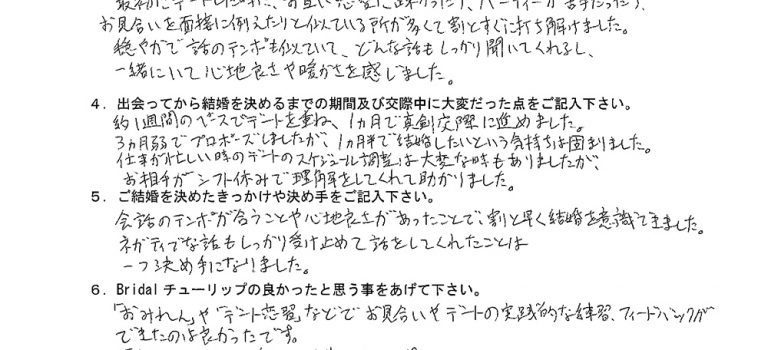 お見合いを面接に例えたりと似ている所が多くて割とすぐに打ち解けました。
穏やかで話のテンポも似ていて、どんな話もしっかり聞いてくれるし、
一緒にいて心地良さや暖かさを感じました。
4．出会ってから結婚を決めるまでの期間及び交際中に大変だった点をご記入下さい。
約1週間のペースでデートを重ね、1ヵ月で真剣交際に進めました。
3ヵ月弱でプロポーズしましたが、1ヵ月半で結婚したいという気持ちは固まりました。
仕事が忙しい時のデートのスケジュール調整は大変な時もありましたが、
お相手がシフト休みで理解をしてくれて助かりました。
5．ご結婚を決めたきっかけや決め手をご記入下さい。
会話のテンポが合うことや心地良さがあったことで、割と早く結婚を意識できました。
ネガティブな話もしっかり受け止めて話をしてくれたことは
一つ決め手になりました。
6．Bridalチューリップの良かったと思う事をあげて下さい。
「おみれん」や「デート恋習」などでお見合いやデートの実践的な練習、フィードバックが
できたのは良かったです。